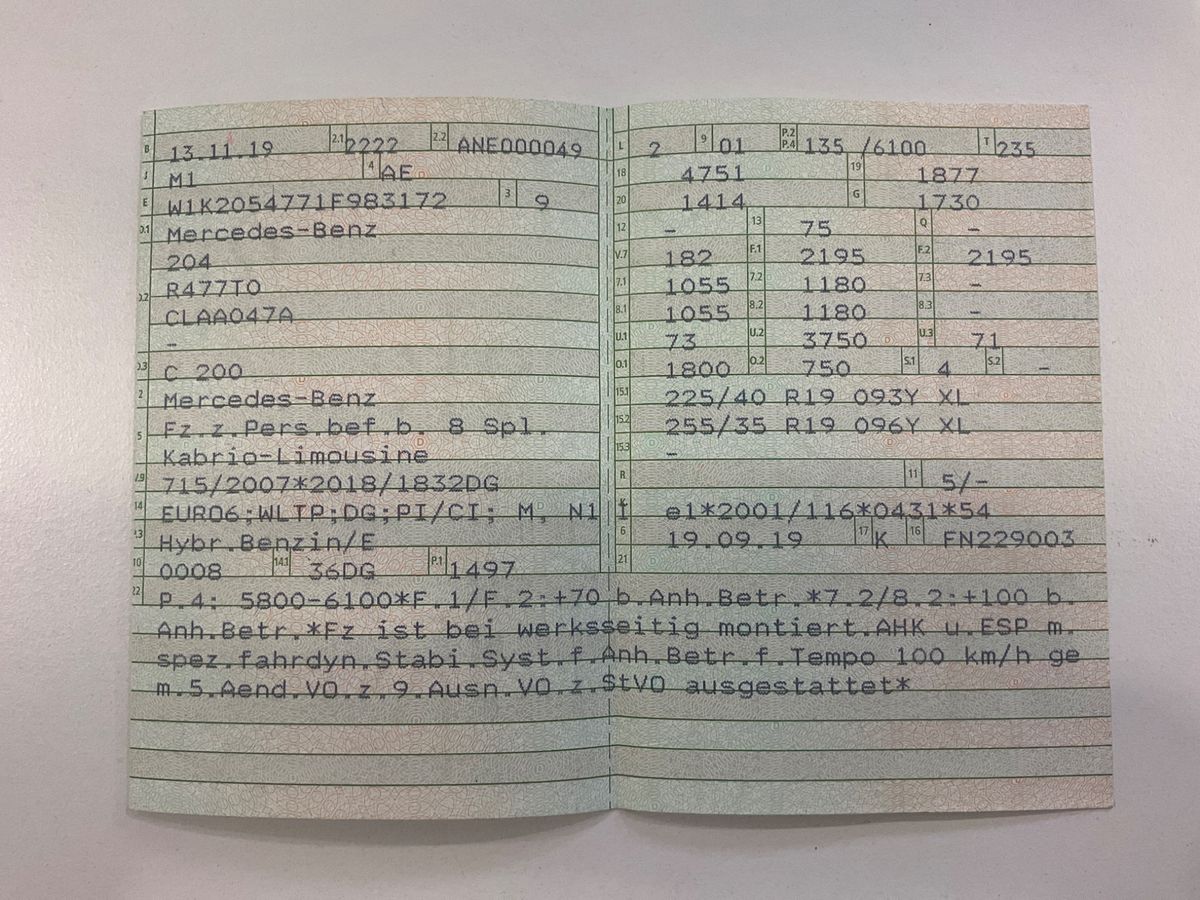 B 13.11.19 2.1 2222 2.2 ANE000049
J M1 4 AE
E W1K2054771F983172 3 9
D.1 Mercedes-Benz
204
D.2 R477T0
CLAA047A
-
D.3 C 200
2 Mercedes-Benz
5 Fz.z.Pers.bef.b. 8 Spl.
Kabrio-Limousine
V.9 715/2007*2018/1832DG
14 EURO6;WLTP;DG;PI/CI; M, N1 I
P.3 Hybr.Benzin/E
10 0008 14.1 36DG P.1 1497
L 2 9 01 P.2 P.4 135 /6100 T 235
18 4751 19 1877
20 1414 G 1730
12 - 13 75 Q -
V.7 182 F.1 2195 F.2 2195
7.1 1055 7.2 1180 7.3 -
8.1 1055 8.2 1180 8.3 -
U.1 73 U.2 3750 U.3 71
O.1 1800 O.2 750 S.1 4 S.2 -
15.1 225/40 R19 093Y XL
15.2 255/35 R19 096Y XL
15.3 -
R 11 5/-
K e1*2001/116*0431*54
6 19.09.19 17 K 16 FN229003
21
22 P.4: 5800-6100*F.1/F.2:+70 b.Anh.Betr.*7.2/8.2:+100 b.
Anh.Betr.*Fz ist bei werksseitig montiert.AHK u.ESP m.
spez.fahrdyn.Stabi.Syst.f.Anh.Betr.f.Tempo 100 km/h ge
m.5.Aend.VO.z.9.Ausn.VO.z.StVO ausgestattet*